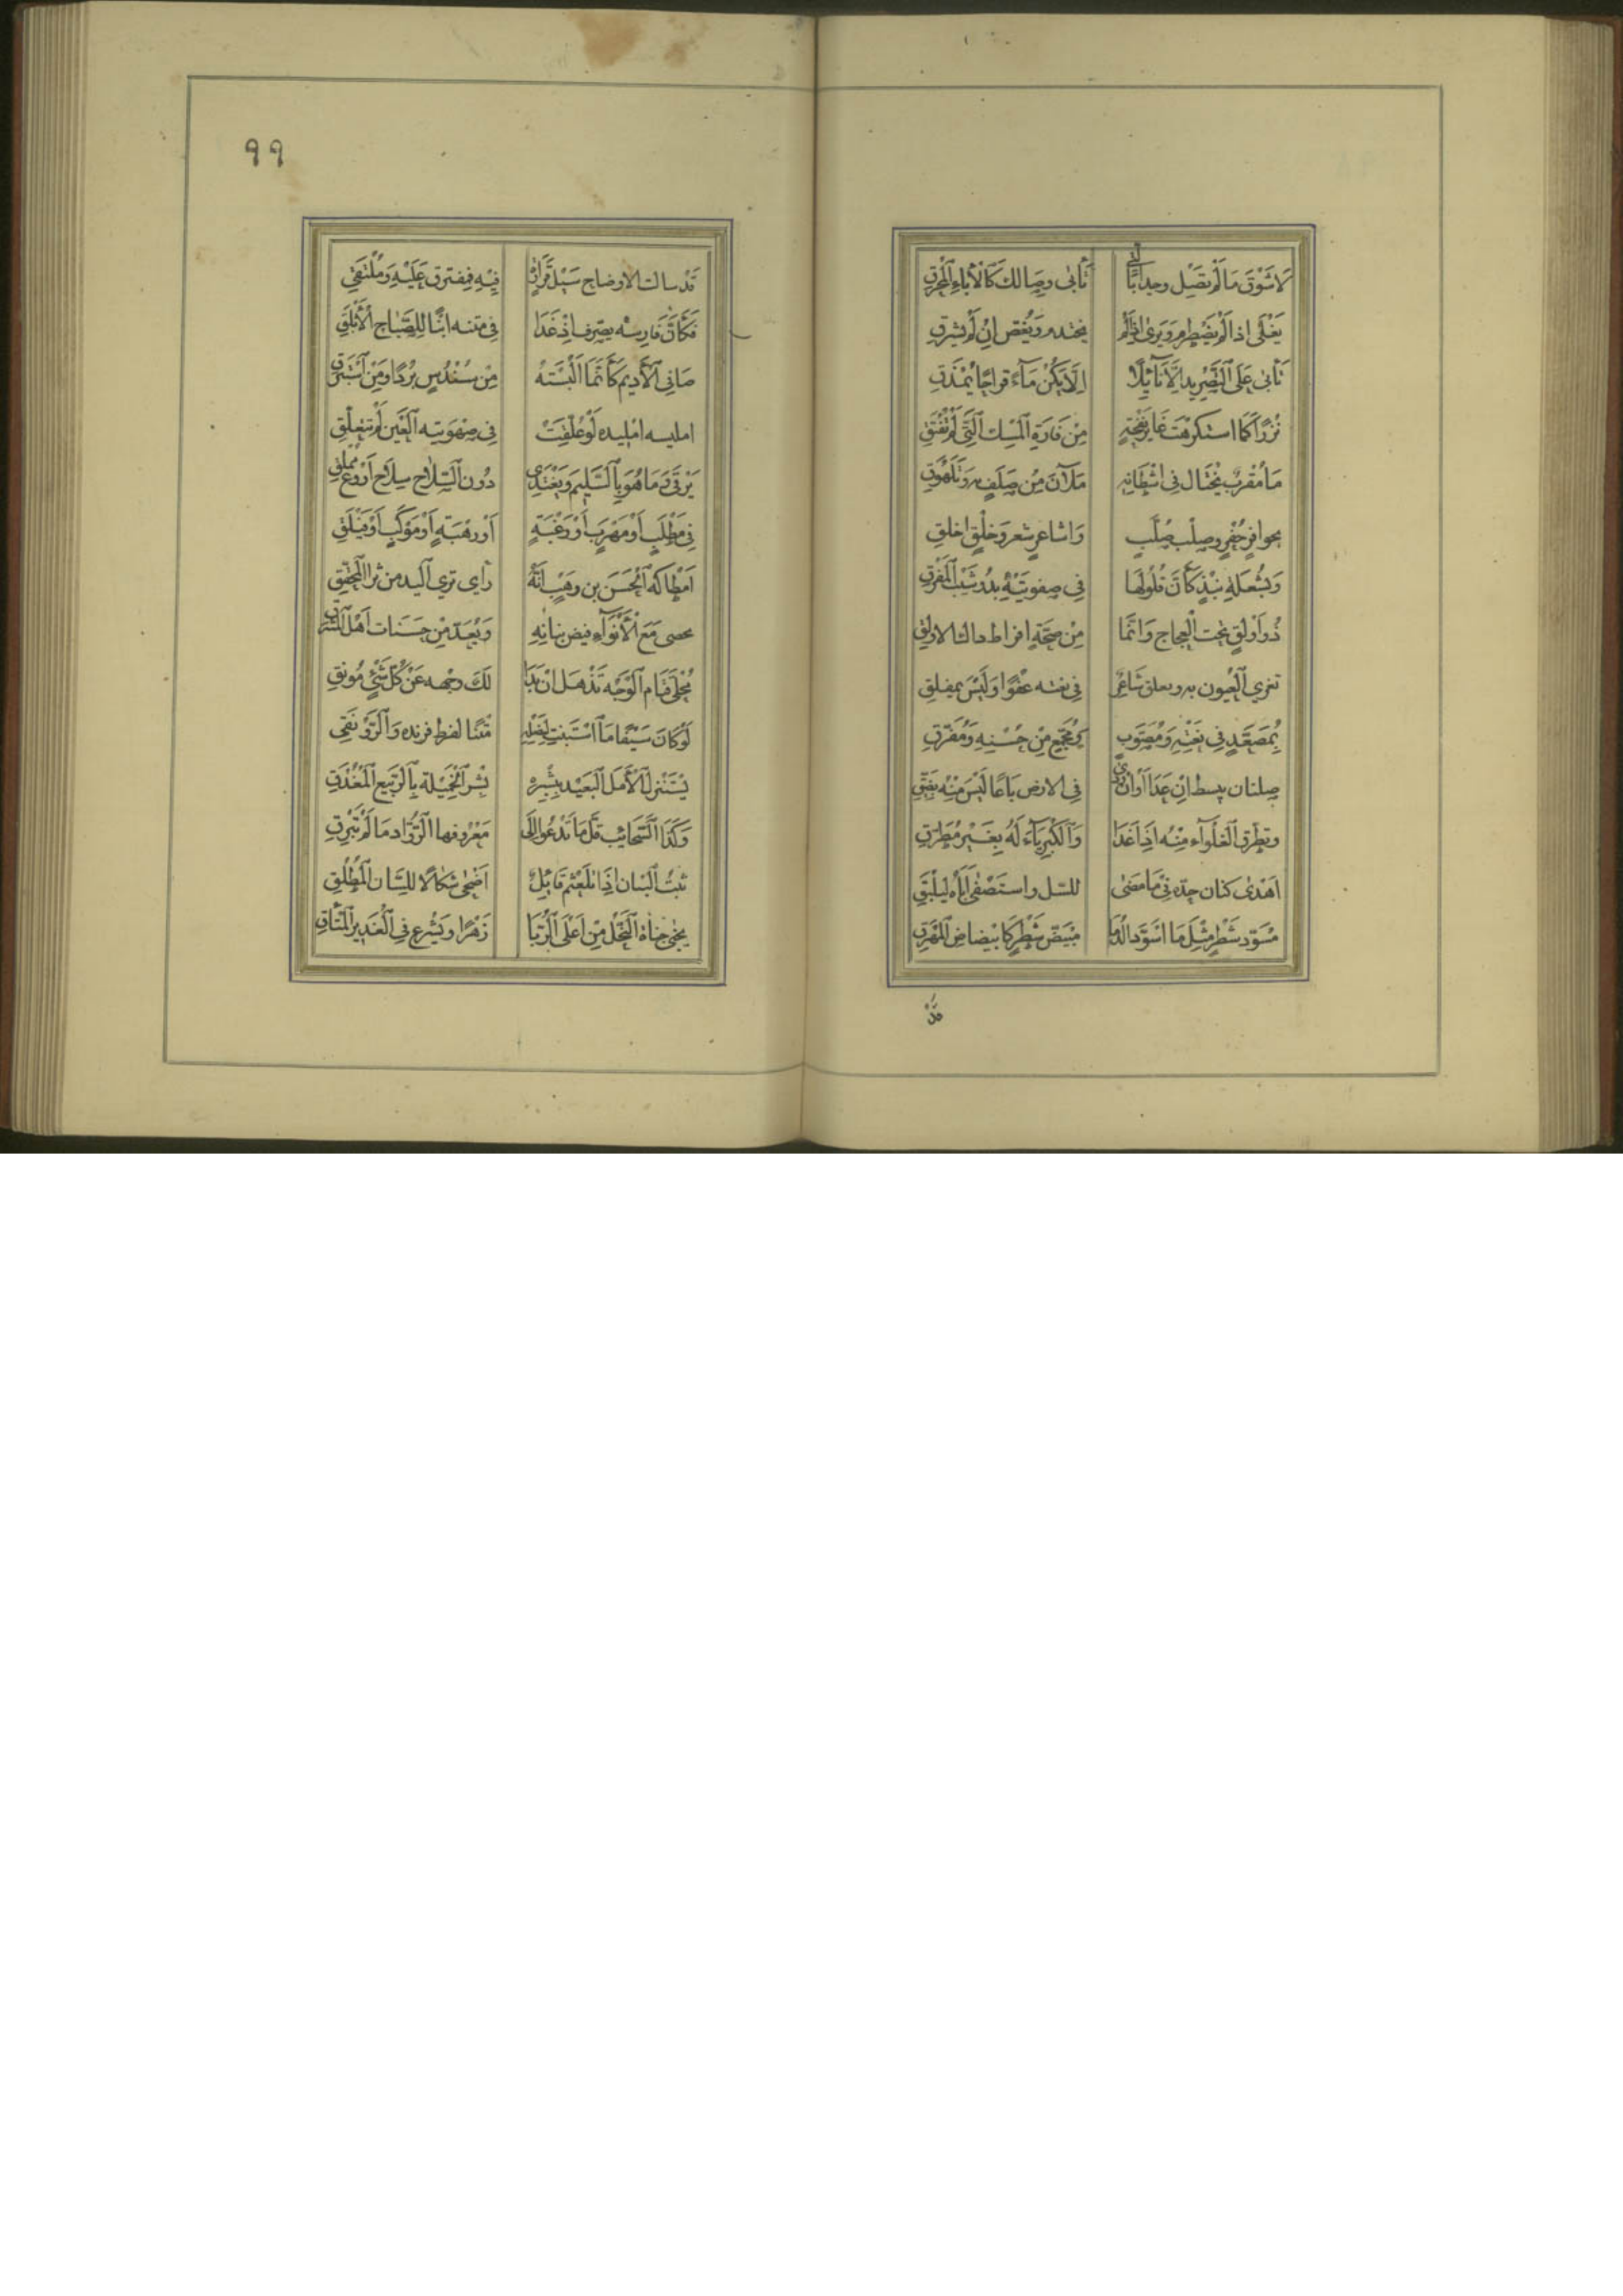 لَا شَوْقَ مَا لَمْ تَصْلَ وجدا بالَّتي تَأْبٰى وِصَالَكَ كَالْأَبَاءِ الْمُحْرَقِ
يَغْلِي اذا لَمْ يَضْطَرِم وَيَرَى اذا لَمْ يحتدم وَيُغَصّ انْ لَمْ يشرقِ
تَأْبٰى عَلَى التَّصْرِيد الَّا نَائِلًا الَّا يَكُنْ مَآءً قراحًا يُمْذَقِ
نَزْرًا كَمَا استكرهت عَاير نَفْحَةٍ مِنْ فَارَةِ الْمِسْك الَّتِي لَمْ تُفْتَقِ
مَا مُقْرَبٌ يَخْتَال فِى اشْطَانِهِ مَلْآنَ مِنْ صَلَفٍ بِهِ وَتَلَهْوُقِ
بحوافرٍ حُفْرٍ وصلْبٍ صُلَّبٍ وَاشَاعرٍ شعرٍ وَخَلْقٍ اخلقِ
وَبِشُعْلَةٍ نَبْذٍ كَأَنَّ فُلُولَهَا فِى صهوتَيْهِ بدْو شَيْب الْمَفْرِقِ
ذُو اَوْلَقٍ تحت الْعجاج وَانَّمَا مِنْ صِحَّةٍ افراط ذاك الاولقِ
تغري الْعُيون به ويفلق شَاعِرٌ فِى نعته عَفْوًا وَلَيْسَ بمفلقِ
بِمُصَعَّدٍ فِى نَعْتِهِ وَمُصَوَّبٍ وَمُجَمَّعٍ مِنْ حُسْنِهِ وَمُفَرَّقِ
صلتان يبسط انْ عَدَا اَوْ انْ رَدى فِى الارض بَاعًا لَيْسَ مِنْهُ بِضَيِّقِ
وتطرّق الْغلَوآء مِنْهُ اذَا غَدَا وَالْكِبْرِيَآءُ لَهُ بِغَيْرِ مُطَرَّقِ
اَهْدٰى كنان جدّه فِيْمَا مَضٰى للمثل واستَصْفٰى اَبَاهُ لِيَلْبَقِ
مُسْوَدّ شَطْرٍ مِثْلَ مَا اسْوَدّ الدُّجَا مُبْيَضّ شَطْرٍ كَابْيِضَاضِ الْمُهْرَقِ
قَدْ
٩٩
قَدْ سالت الاوضاح سَيْلَ قَرَارَةٍ فِيْهِ فمفترق عَلَيْهِ وَمُلْتَقِي
فَكَأَنَّ فَارِسَهُ يصرّف اِذْ غَدَا فِى متنه ابْنًا للِصَّبَاح الْأَبْلَقِ
صَافِى الْأَدِيم كَأَنَّمَا الْبَسْتَهُ مِنْ سُنْدُسٍ بُرْدًا وَمِنْ اَسْتَبْرَقِ
امليسه امليده لَوْ عُلِّقَتْ فِى صهْوَتيه الْعَيْن لَمْ تتعلّقِ
يَرْقَى وَمَا هُوَ بِالسَّلِيْمِ وَيَغْتَدِي دُوْن السِّلَاح سِلَاح اَرْوَعَ مملقِ
فِى مَطْلَبٍ اَوْ مَهْرَبٍ اَوْ رَغْبَةٍ اَوْ رهْبَةٍ اَوْ مَوْكَبٍ اَوْ فَيْلَقِ
اَمْطَاكَهُ الْحَسَن بن وَهْبٍ انَّهُ
يحصى مَعَ الْأَنْوَآءِ فيض بنانِهِ وَيُعَدّ مِنْ حَسَنَات اَهْل الْمَشْرِقِ
لَكَ وجْهه عَنْ كُلّ شَيْءٍ مُوْنِقِ
لَوْ كَانَ سَيْفًا مَا اسْتَبَنْت لِنَصْلِهِ مَتْنًا لفرط فرنده وَالرَّوْنَقِ
يَسْتَنْزِل الْأَمَل الْبَعِيْد بِبِشْرِهِ بُشْرَ الْخَمِيْلَة بِالرَّبِيع الْمُغْدِقِ
وَكَذَا السَّحَائِب قَلَّ مَا تَدْعُو الَى مَعْرُوفها الرُّوَّاد مَا لَمْ تَبْرِقِ
ثبْتُ الْبَيَان اذَا تَلَعْثَم قَائِلٌ اَضْحٰى شكَالًا للِّسَان الْمُطْلَقِ
يجني جَنَاة النَّحْل مِنْ اَعْلَى الرُّبَا زَهْرًا وَيشْرع فِى الْغَدِير الْمُتْأَقِ